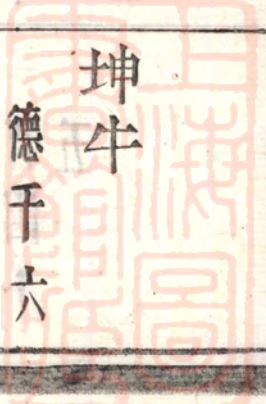 坤牛
德千六